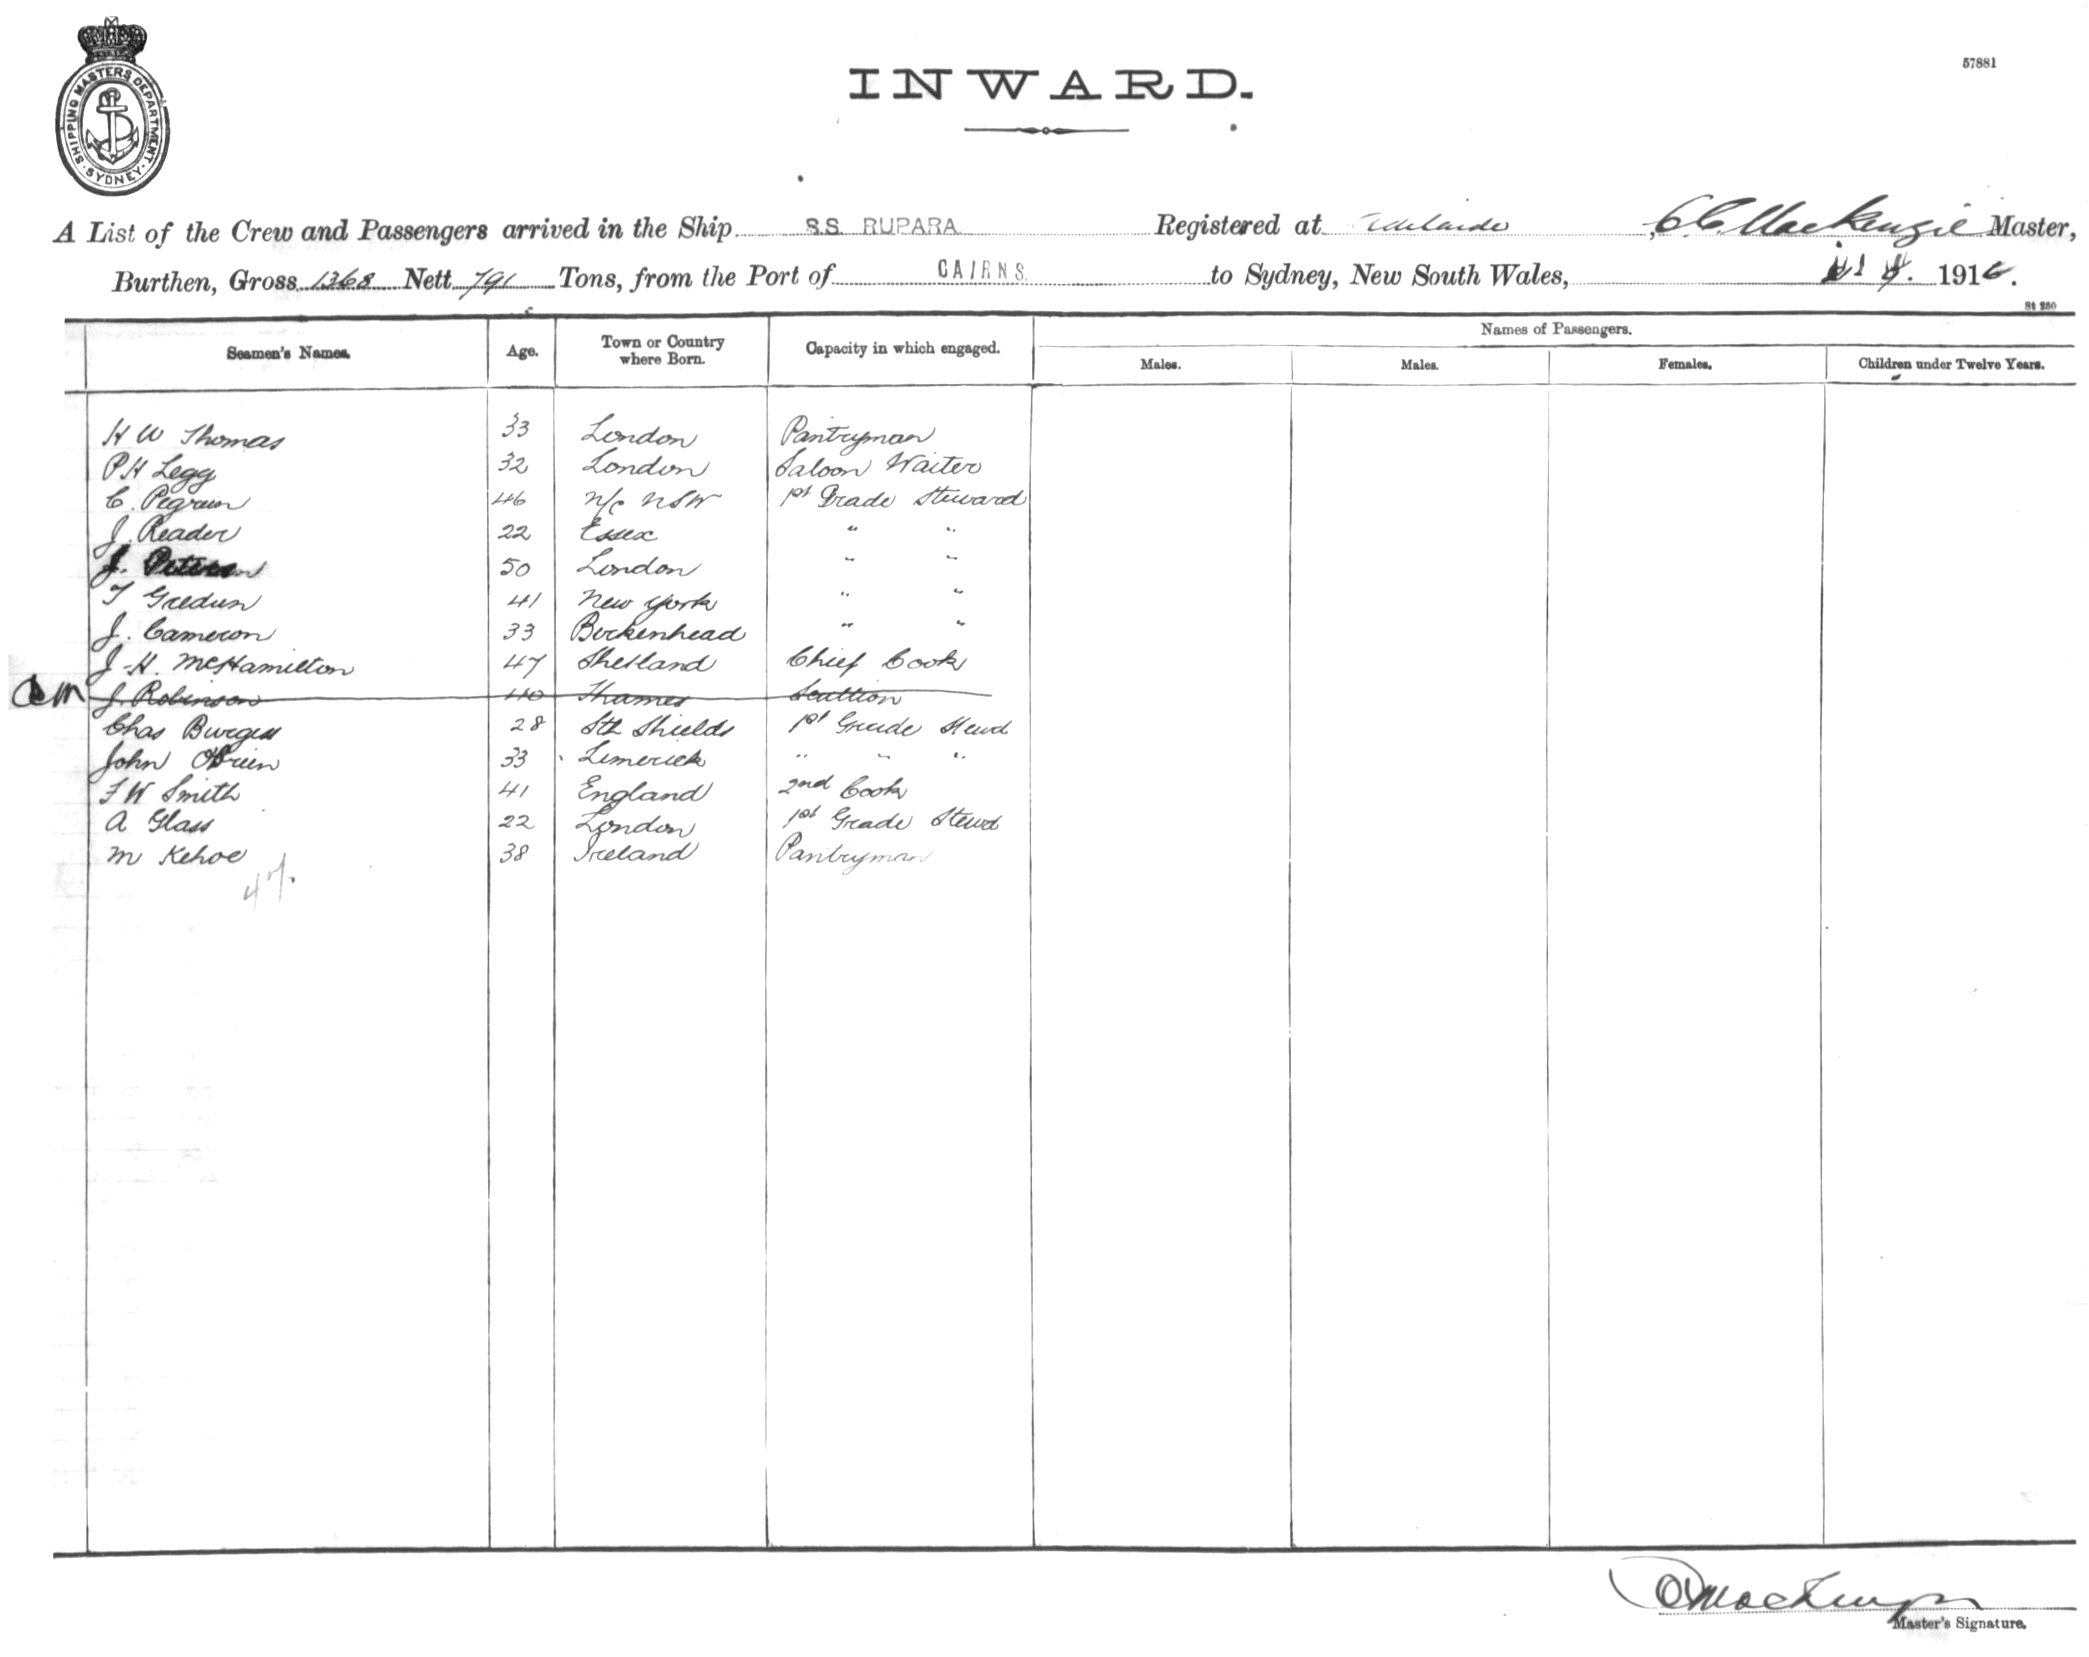 SHIPPING MASTERS DEPARTMENT
SYDNEY
INWARD.
57881
A List of the Crew and Passengers arrived in the Ship S.S. RUPARA Registered at Adelaide, C C Mackenzie Master,
Burthen, Gross 1368 Nett 791 Tons, from the Port of CAIRNS to Sydney, New South Wales, 1916.
St 250
Seamen's Names. Age. Town or Country where Born. Capacity in which engaged. Names of Passengers.
Males. Males. Females. Children under Twelve Years.
H W Thomas 33 London Pantryman
P H Legg 32 London Saloon Waiter
C. Pegrum 46 N/C NSW 1st Grade Steward
J. Reader 22 Essex " "
J. Peterson 50 London " "
T 41 New York " "
J. Cameron 33 Birkenhead " "
J. H. McHamilton 47 Shetland Chief Cook
J. Robinson 40 Thames Scullion
Chas Burgess 28 Sth Shields 1st Grade Stewd
John O'Brien 33 Limerick " " "
F W Smith 41 England 2nd Cook
A Glass 22 London 1st Grade Stewd
M Kehoe 38 Ireland Pantryman
47.
C Mackenzie
Master's Signature.